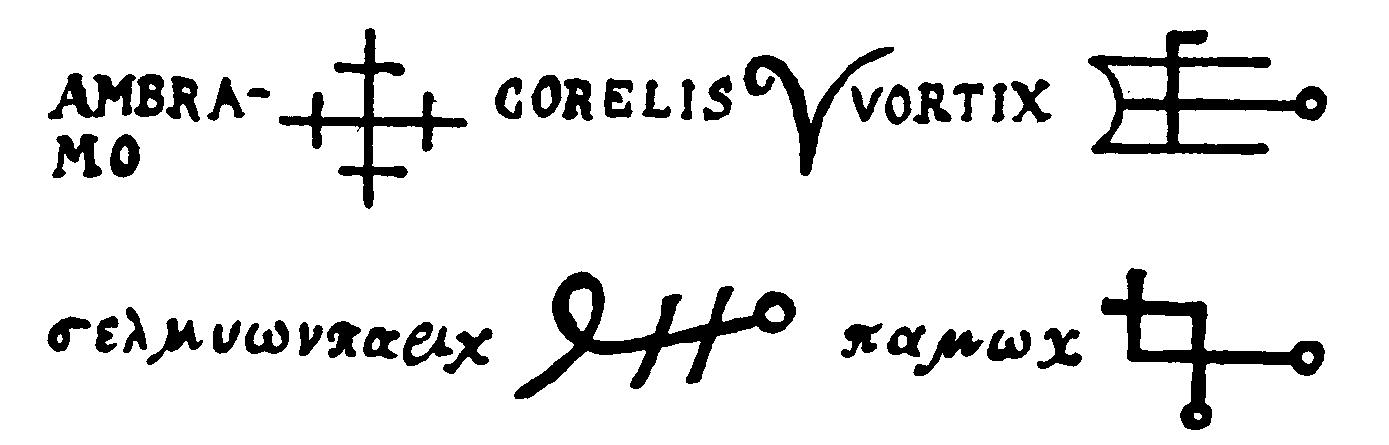 AMBRA- CORELIS VORTIX
MO
σελμυωνπαριχ παμωχ